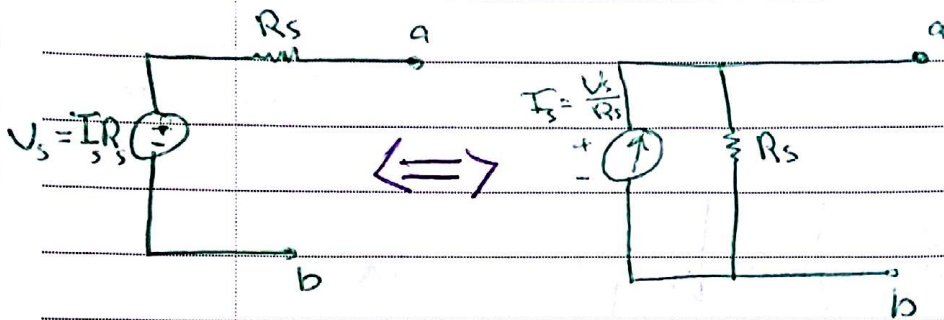 Rs
a
Vs = IsRs
+
-
b
<=>
Is = Vs/Rs
+
-
Rs
a
b